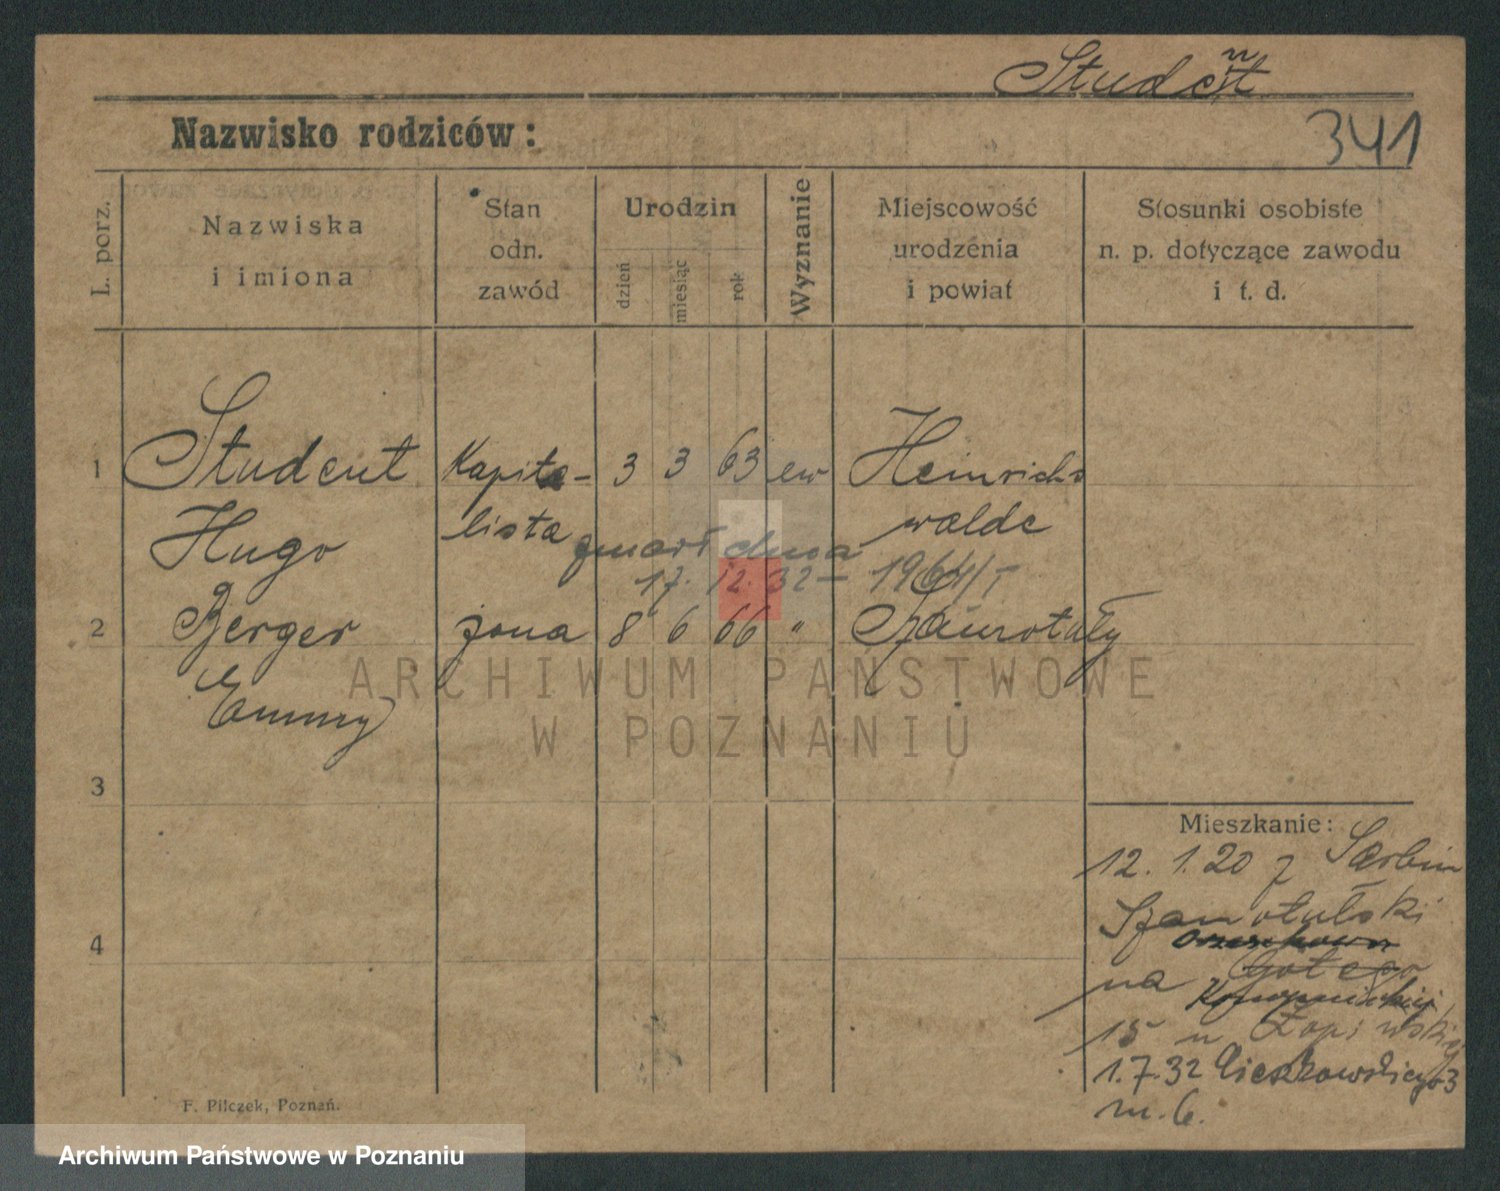 Student
341
Nazwisko rodziców:
L. porz.
Nazwiska
i imiona
Stan
odn.
zawód
Urodzin
dzień
miesiąc
rok
Wyznanie
Miejscowość
urodzenia
i powiat
Stosunki osobiste
n. p. dotyczące zawodu
i t. d.
1 Student Kapita- 3 3 63 ew Heinrichs
Hugo lista walde
zmarł dnia
17. 12. 32 –
2 Berger żona 8 6 66 " Szamotuły
Emmy
3
4
Mieszkanie:
12. 1. 20 z Sarbin
Szamotulski
na
15 u
1.7.32 Cieszkowskiego 3
m. 6.
F. Pilczek, Poznań.
ARCHIWUM PAŃSTWOWE
W POZNANIU
Archiwum Państwowe w Poznaniu